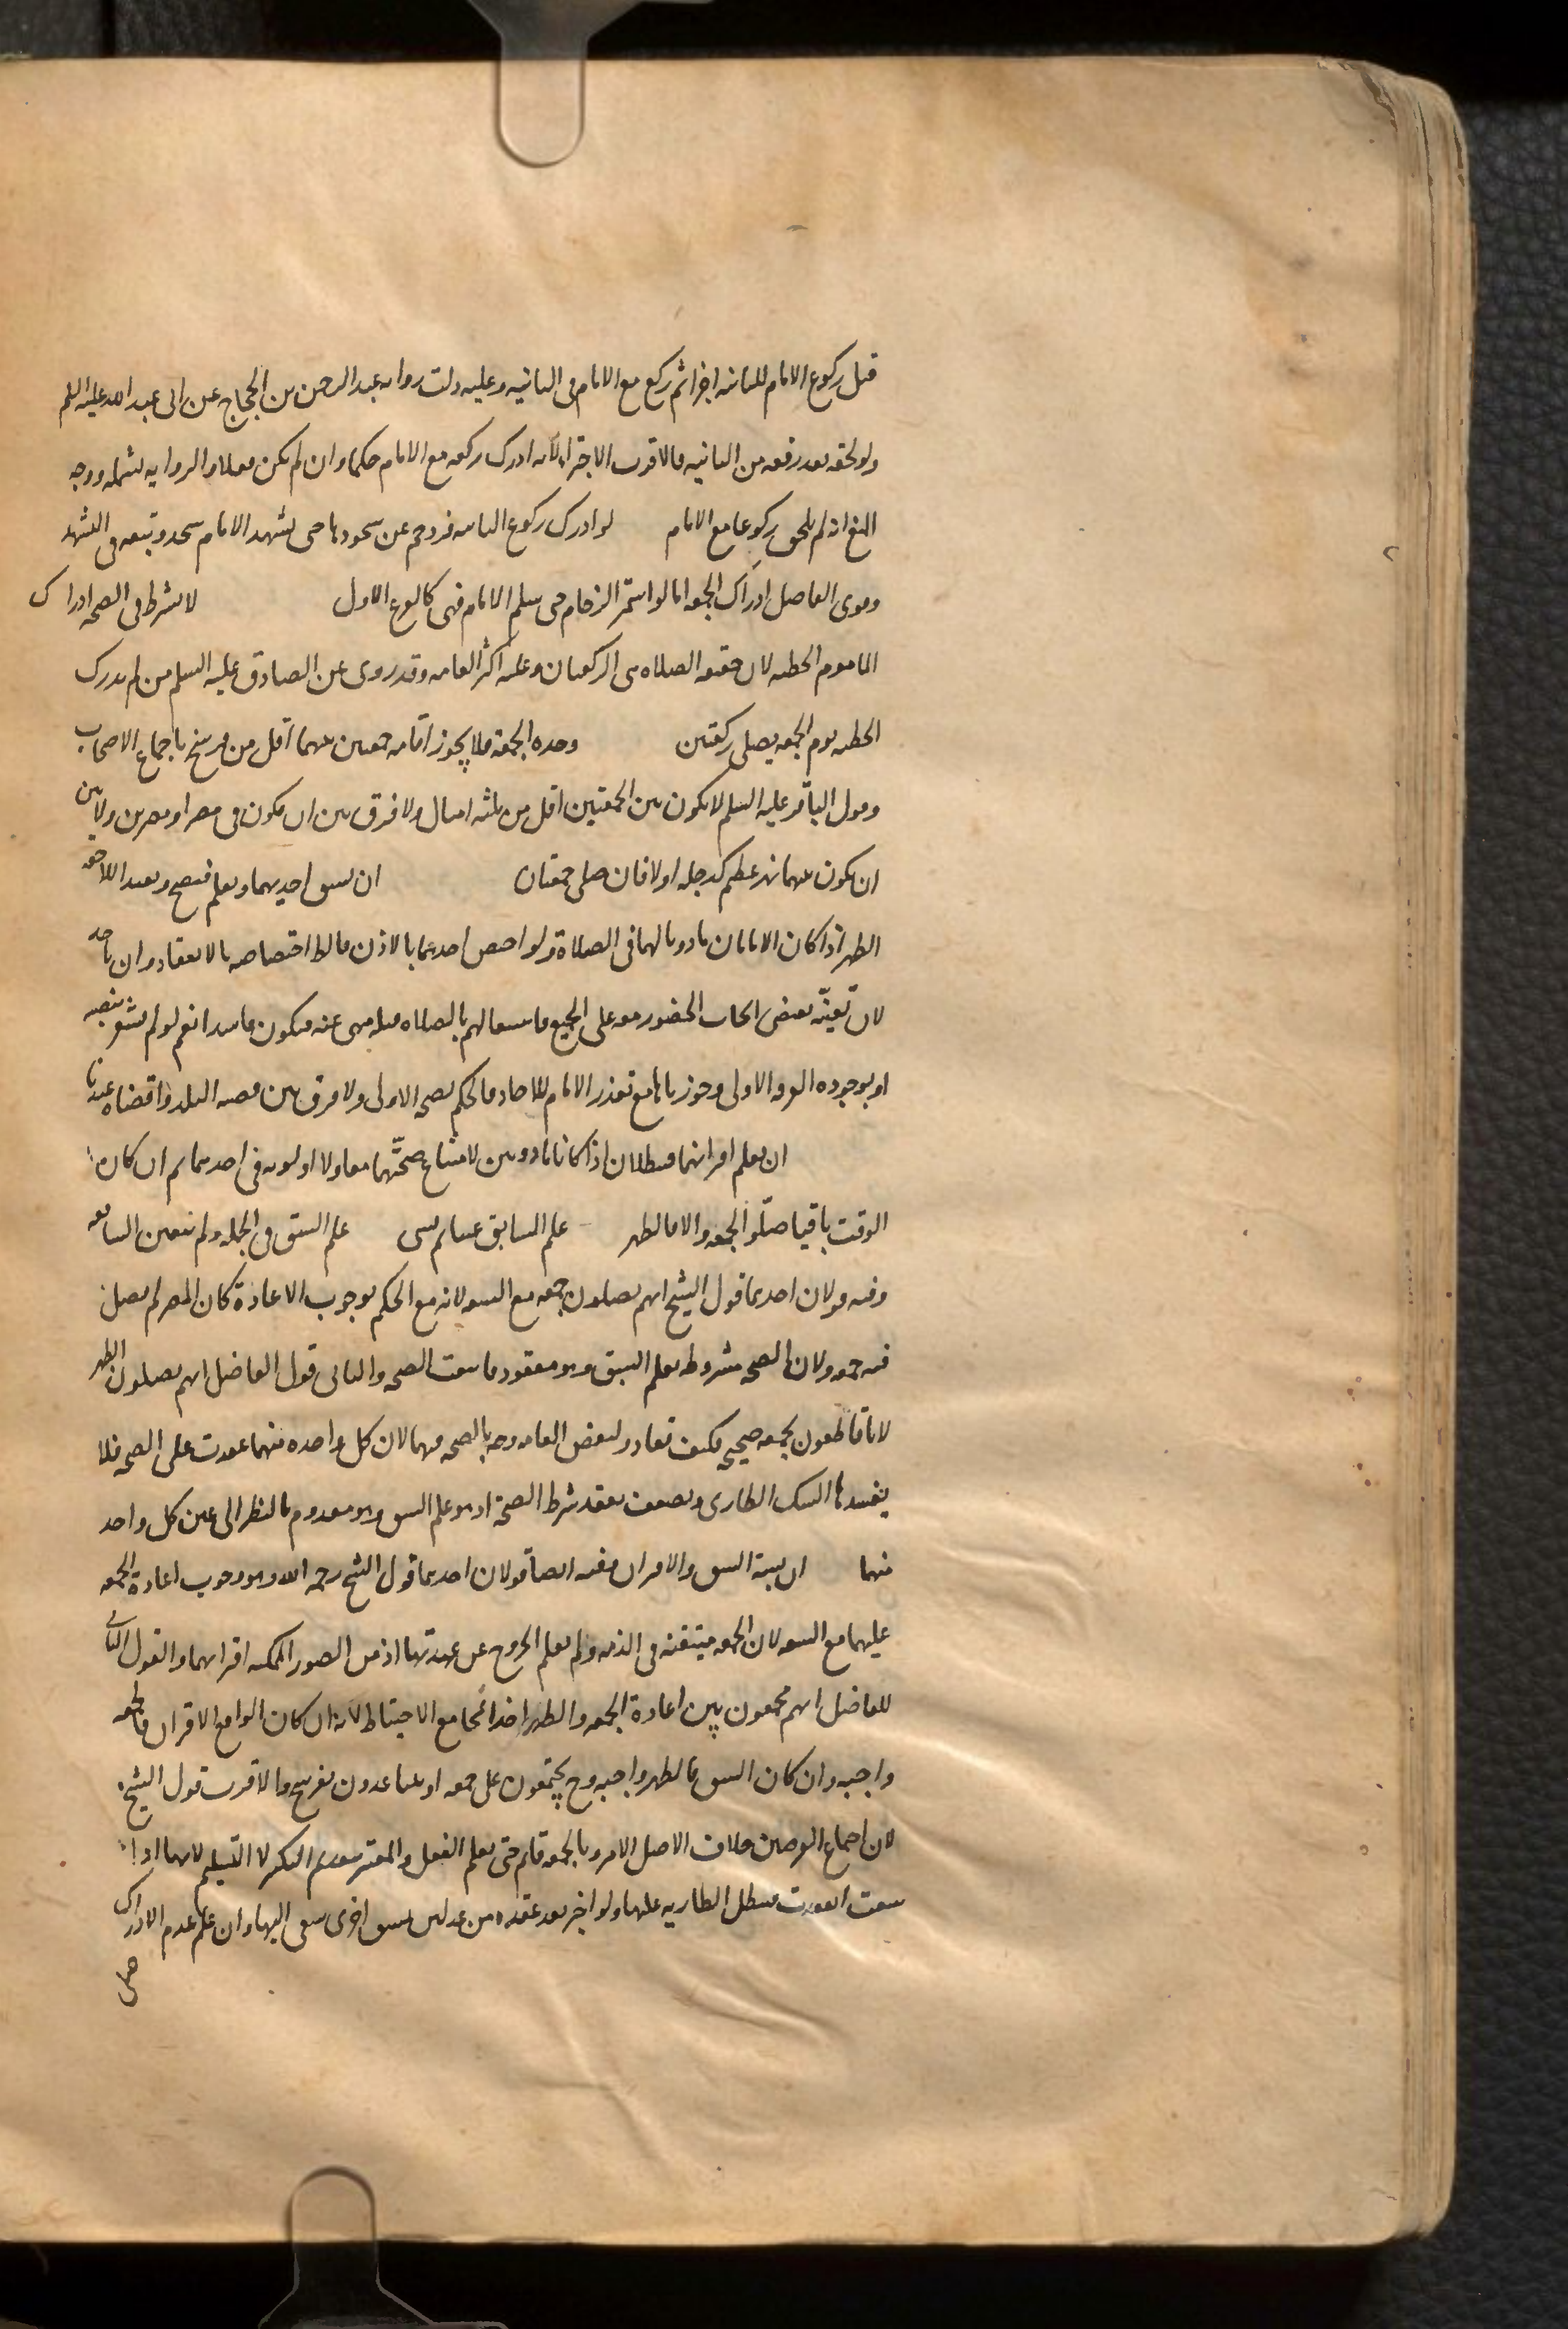 قبل ركوع الامام للثانية اجزأ ثم ركع مع الامام فى الثانيه وعليه دلت روايه عبد الرحمن بن الحجاج عن ابى عبد الله عليه السلم
ولو لحقه بعد رفعه من الثانيه فالاقرب الاجتزاء لانه ادرك ركعه مع الامام حكما وان لم يكن فعلا والروايه تشمله ووجه
المنع انه لم يلحق ركوعا مع الامام لو ادرك ركوع الثانيه فزوحم عن سجودها حتى تشهد الامام سجد وتبعه فى التشهد
وقوى الفاضل ادراك الجمعه اما لو استمر الزحام حتى سلم الامام فهى كالفرع الاول لا يشترط فى الصحه ادراك
الماموم الخطبه لان حقيقه الصلاه هى الركعتان وعليه اكثر العامه وقد روى عن الصادق عليه السلم من لم يدرك
الخطبه يوم الجمعه يصلى ركعتين وحده الجمعة فلا يجوز اقامه جمعتين بينهما اقل من فرسخ باجماع الاصحاب
وقول الباقر عليه السلم لا يكون بين الجمعتين اقل من ثلثه اميال ولا فرق بين ان يكون فى مصر او مصرين ولا بين
ان يكون بينهما نهر عظيم كدجله او لا فان صلى جمعتان ان سبق احديهما ويعلم فتصح وتعيد اللاحقه
الظهر اذا كان الامامان ماذونا لهما فى الصلاة ولو اختص احدهما بالاذن فالظ اختصاصه بالانعقاد وان تاخر
لان تعينه يقتضى ايجاب الحضور معه على الجميع فاشتغالهم بالصلاه قبله منهى عنه فيكون فاسدا نعم لو لم يشعر بنصبه
او بوجوده الفرقه الاولى وجوزناها مع تعذر الامام للاحاد فالحكم بصحه الاولى ولا فرق بين قصبه البلد واقصاه عندنا
ان يعلم اقترانهما فيبطلان اذا كانا ماذونين لامتناع صحتهما معا ولا اولويه فى احدهما ثم ان كان
الوقت باقيا صلوا الجمعه والا فالظهر علم السابق عينا ثم نسى علم السبق فى الجمله ولم يتعين السابقه
وفيه قولان احدهما قول الشيخ انهم يصلون جمعه مع السعه لانه مع الحكم بوجوب الاعادة كان المصر لم يصل
فيه جمعه ولان الصحه مشروطه بعلم السبق وهو مفقود فانتفت الصحه والثانى قول الفاضل انهم يصلون الظهر
لانا قاطعون بجمعه صحيحه فكيف تعاد ولبعض العامه وجه بالصحه فيهما لان كل واحده منهما عقدت على الصحه فلا
يفسدها الشك الطارى ويضعف بفقد شرط الصحة اذ هو علم السبق وهو معدوم بالنظر الى عين كل واحد
منهما ان يشتبه السبق والاقتران ففيه ايضا قولان احدهما قول الشيخ رحمه الله وهو وجوب اعادة الجمعه
عليهما مع السعه لان الجمعه متيقنه فى الذمه ولم يعلم الخروج عن عهدتها اذ من الصور الممكنه اقترانهما والقول الثانى
للفاضل انهم يجمعون بين اعادة الجمعه والظهر اخذا بمجامع الاحتياط لانه ان كان الواقع الاقتران فالجمعه
واجبه وان كان السبق فالظهر واجبه وح يجتمعون على جمعه او يتباعدون بفرسخ والاقرب قول الشيخ
لان اجماع الفرضين خلاف الاصل الامر بالجمعه قائم حتى يعلم الفعل والمعتبر بتقدم التكبير لا التسليم لانها اذا
سبقت انعقدت فيبطل الطاريه عليها ولو اخبر بعد عقده من عدلين بسبق اخرى سعى اليها وان علم عدم الادراك
صلى